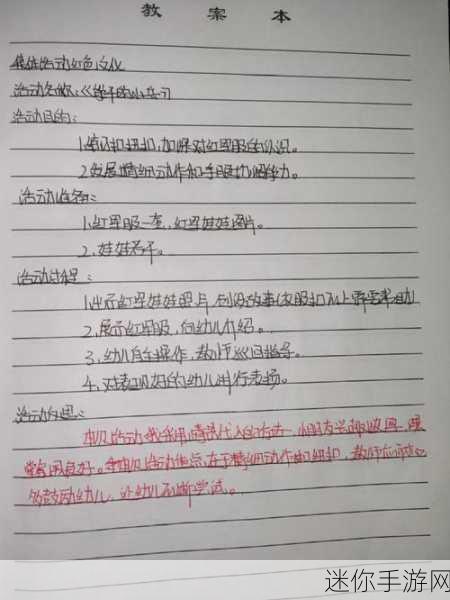 教案本
集体活动红色文化
活动名称:《能干的小兵》
活动目的:
1.练习扣纽扣,加深对红军服的认识。
2.发展精细动作和手眼协调能力。
活动准备:
1.红军服一套,红军娃娃图片。
2.娃娃若干。
活动过程:
1.出示红军娃娃照片,创设故事(衣服扣不上需要帮助)
2.展示红军服,向幼儿介绍。
3.幼儿自主操作,教师巡回指导。
4.对表现好的幼儿进行表扬。
活动反思:
本次活动我采用情境代入的方法,小朋友兴趣
常规良好。本次活动重点在于精细动作扣纽扣,教师应
多鼓励幼儿,让幼儿不断尝试。
迷你手游网